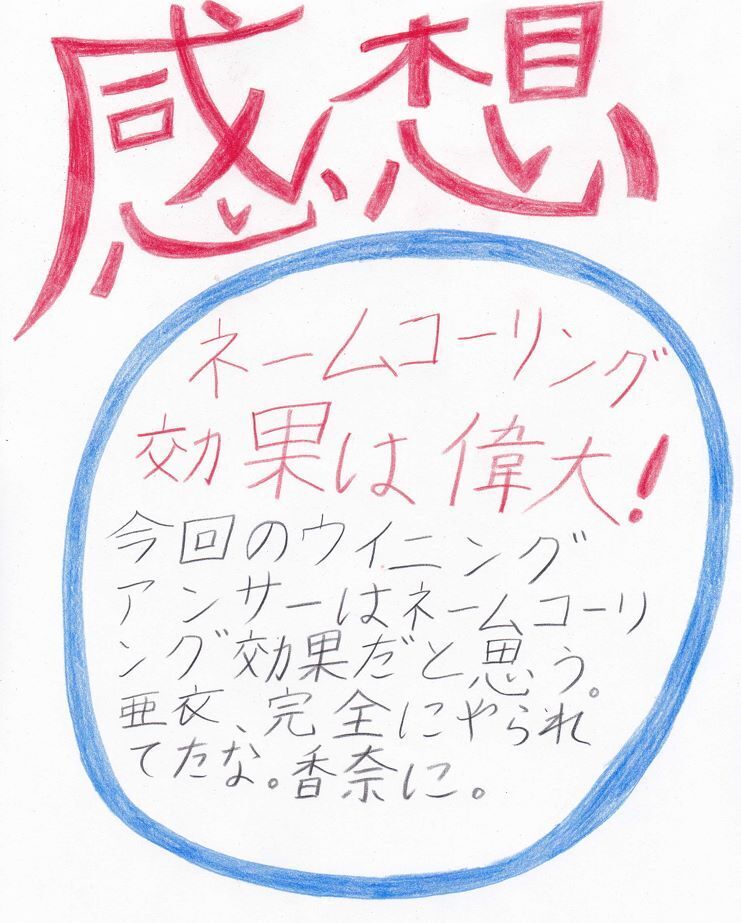 感想
ネームコーリング
効果は偉大!
今回のウイニング
アンサーはネームコーリ
ング効果だと思う。
亜衣、完全にやられ
てたな。香奈に。